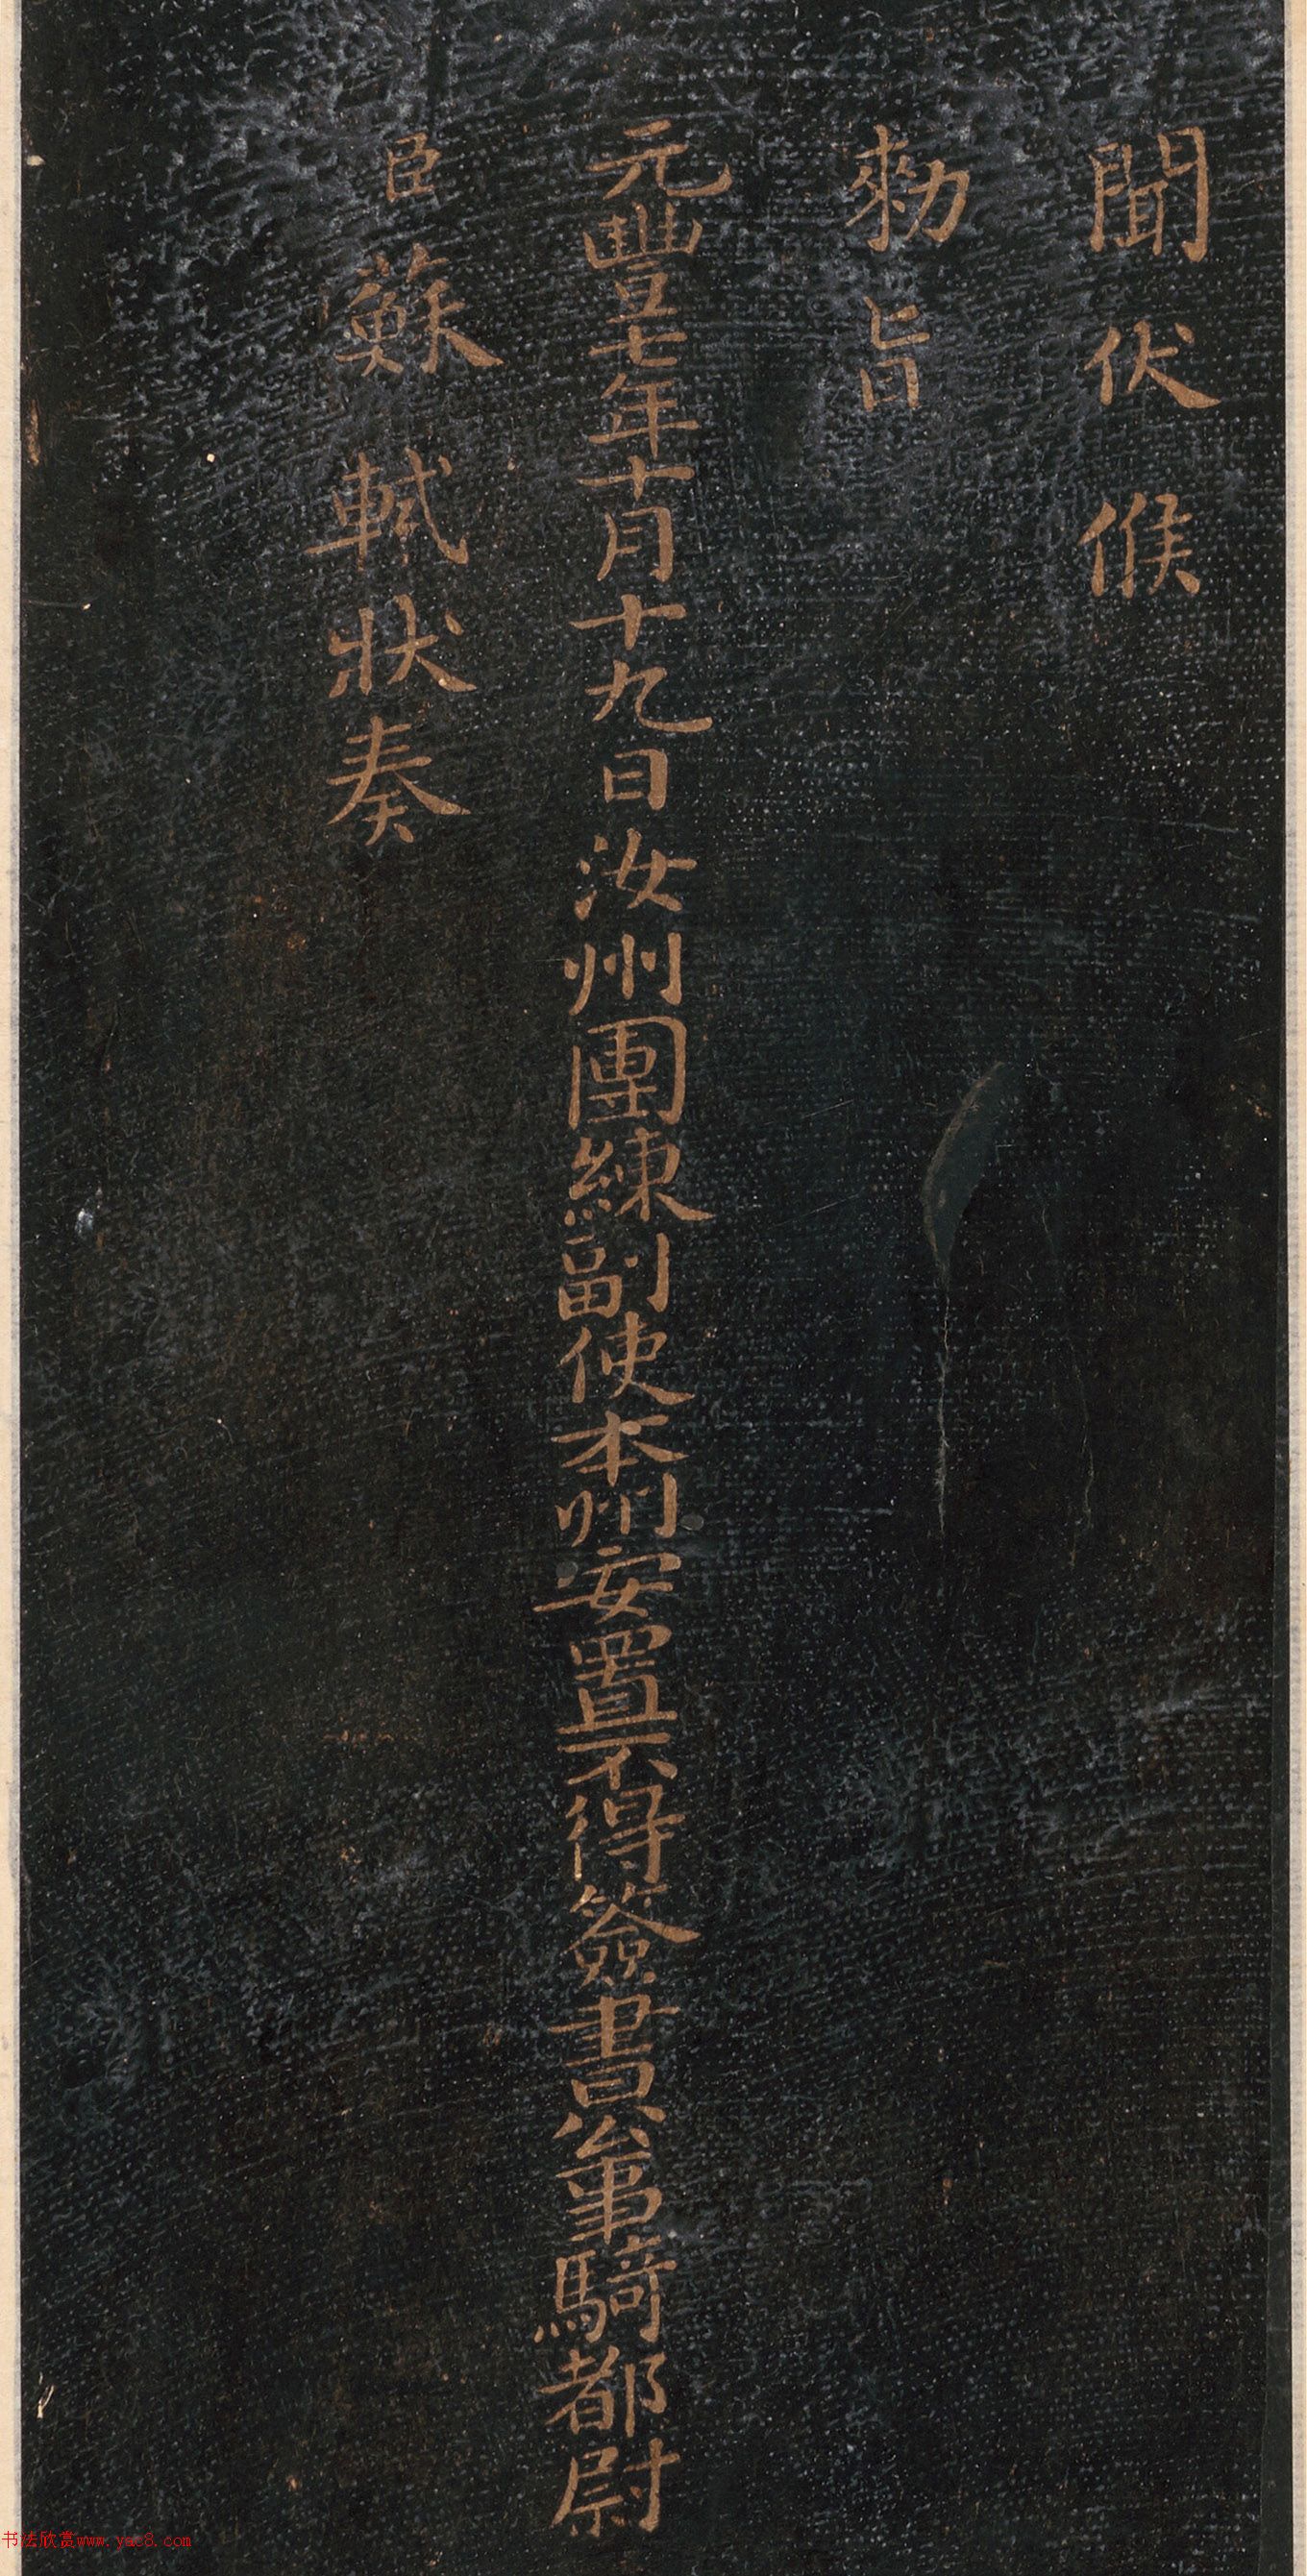 聞伏候
勑旨
元豐七年十月十九日汝州團練副使本州安置不得簽書公事騎都尉
臣蘇軾狀奏
书法欣赏www.yac8.com